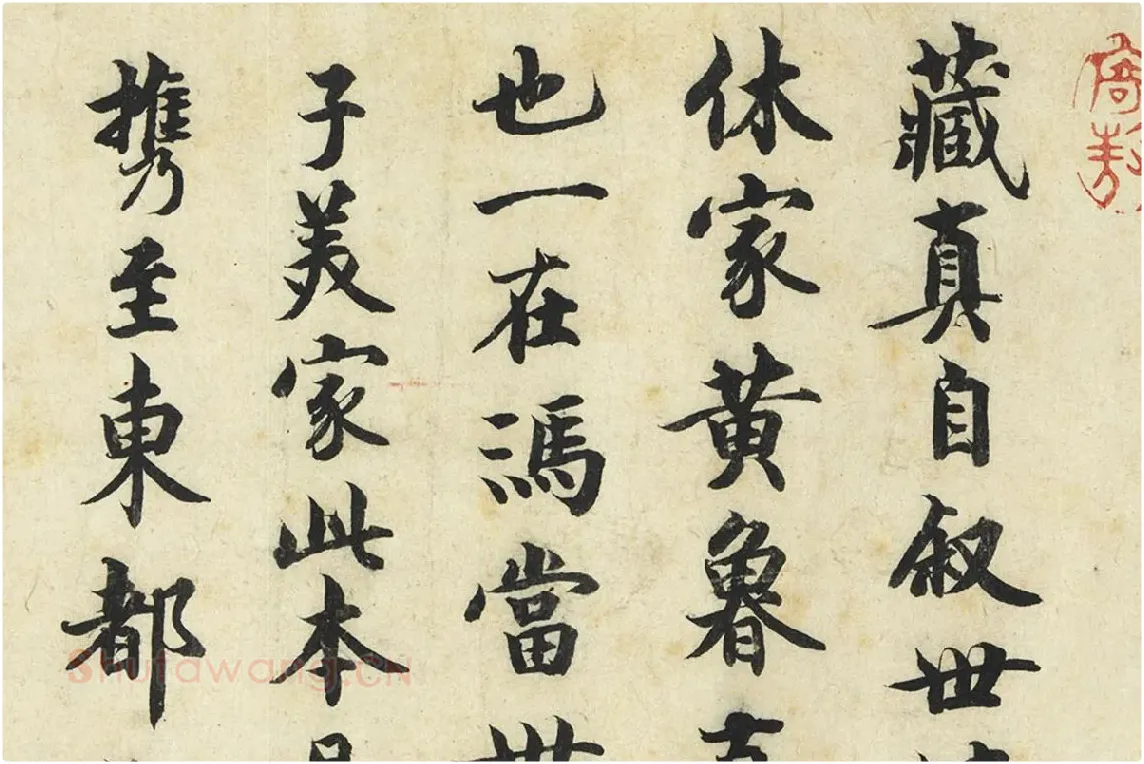 藏真自叙世
休家黄魯
也一在馮當世
子美家此本
攜至東都
shufawang.CN